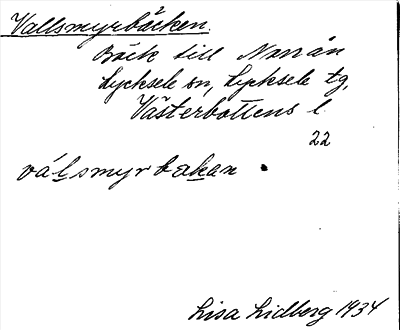 Vallsmyrbäcken.
Bäck till Norrån
Lycksele sn, Lycksele tg,
Västerbottens l.
22
válsmyrbakan .
Lisa Lidberg 1934